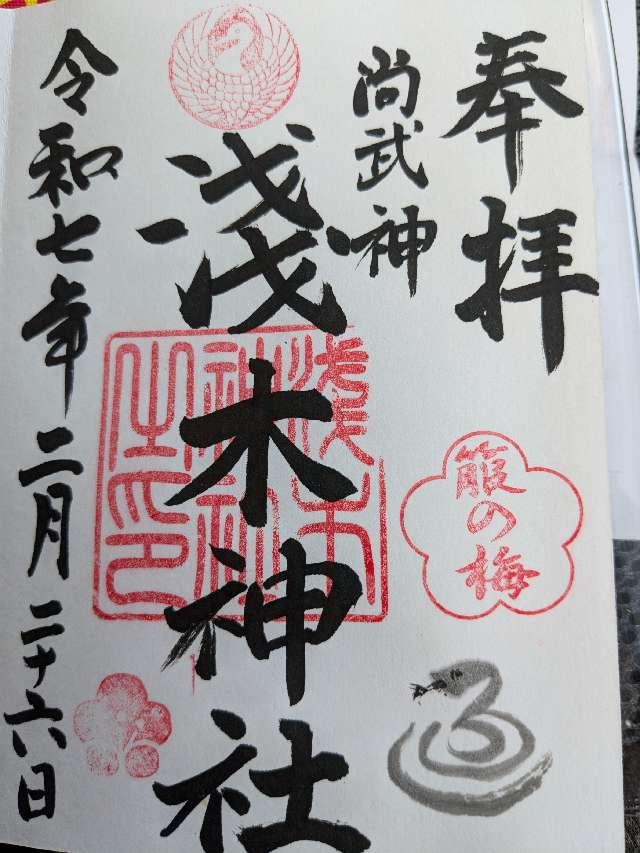 奉拝
尚武神
浅木神社
令和七年二月二十六日
箙の梅
浅木
神社
之印